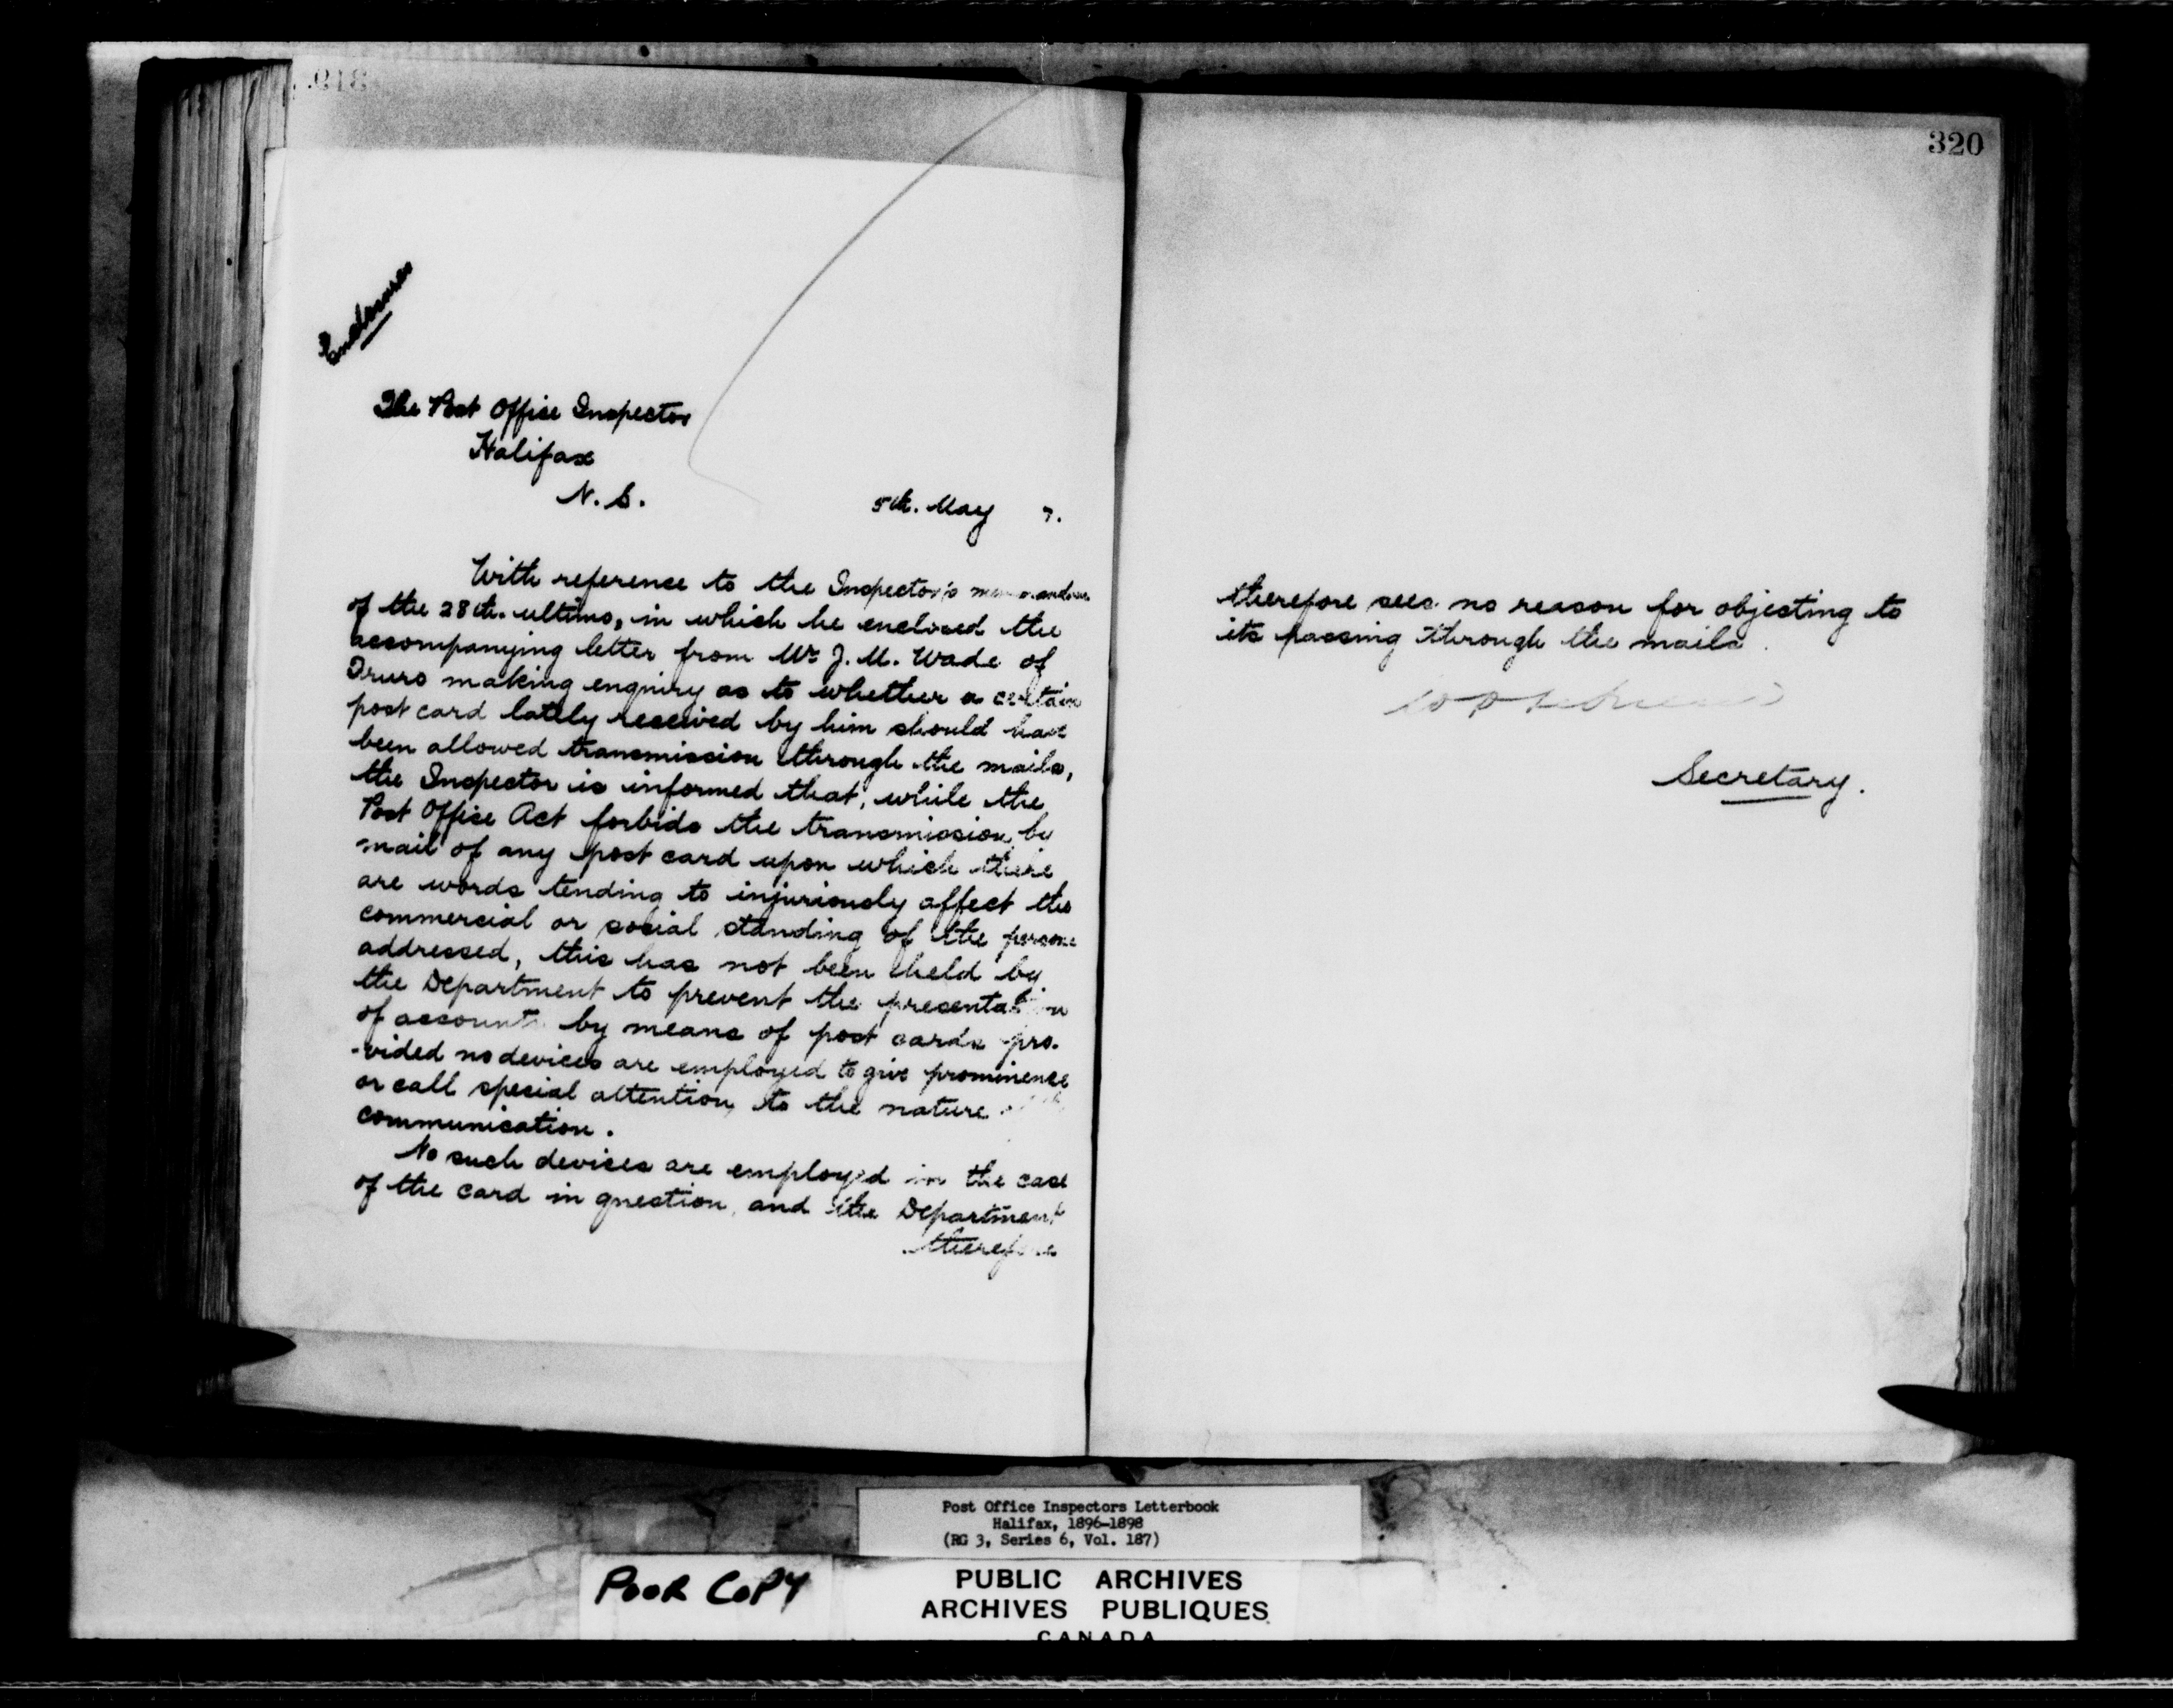 Enclosures
The Post Office Inspector
Halifax
N. S.
5th. May 7.
With reference to the Inspector's memorandum
of the 28th. ultimo, in which he enclosed the
accompanying letter from Mr J. M. Wade of
Truro making enquiry as to whether a certain
post card lately received by him should have
been allowed transmission through the mails,
the Inspector is informed that, while the
Post Office Act forbids the transmission by
mail of any post card upon which there
are words tending to injuriously affect the
commercial or social standing of the person
addressed, this has not been held by
the Department to prevent the presentation
of accounts by means of post cards pro-
-vided no devices are employed to give prominence
or call special attention to the nature
communication.
No such devices are employed in the case
of the card in question, and the Department
therefore
320
therefore sees no reason for objecting to
its passing through the mails.
Secretary.
Post Office Inspectors Letterbook
Halifax, 1896-1898
(RG 3, Series 6, Vol. 187)
POOR COPY
PUBLIC ARCHIVES
ARCHIVES PUBLIQUES
CANADA